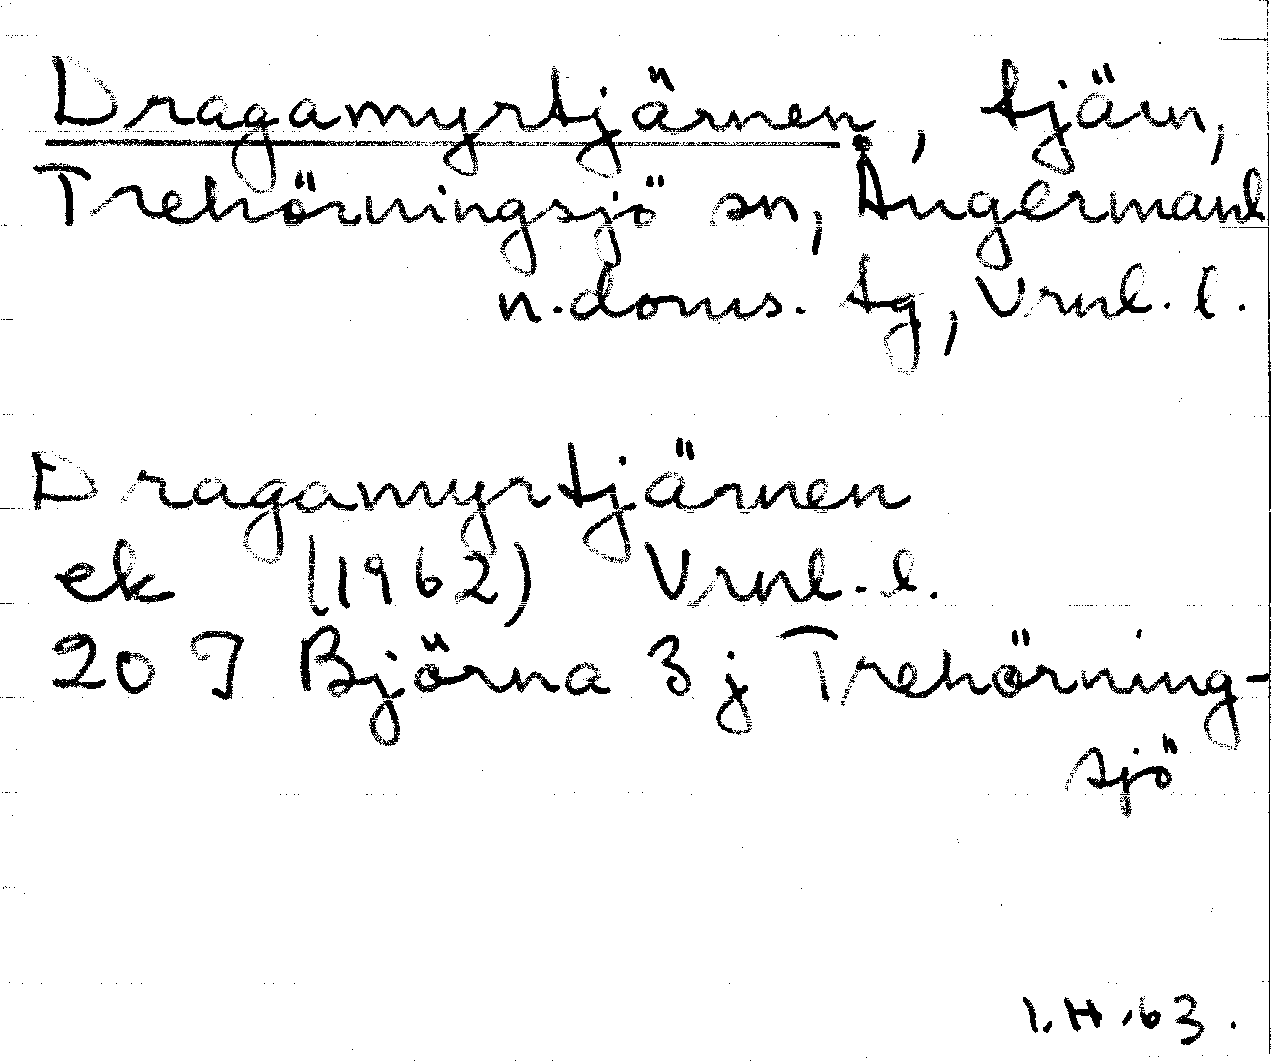 Dragamyrtjärnen, tjärn,
Trehörningsjö sn, Ångermanl
n. doms. tg, Vrnl. l.
Dragamyrtjärnen
ek (1962) Vrnl. l.
20 J Björna 3 j Trehörning-
sjö
I.H.63.